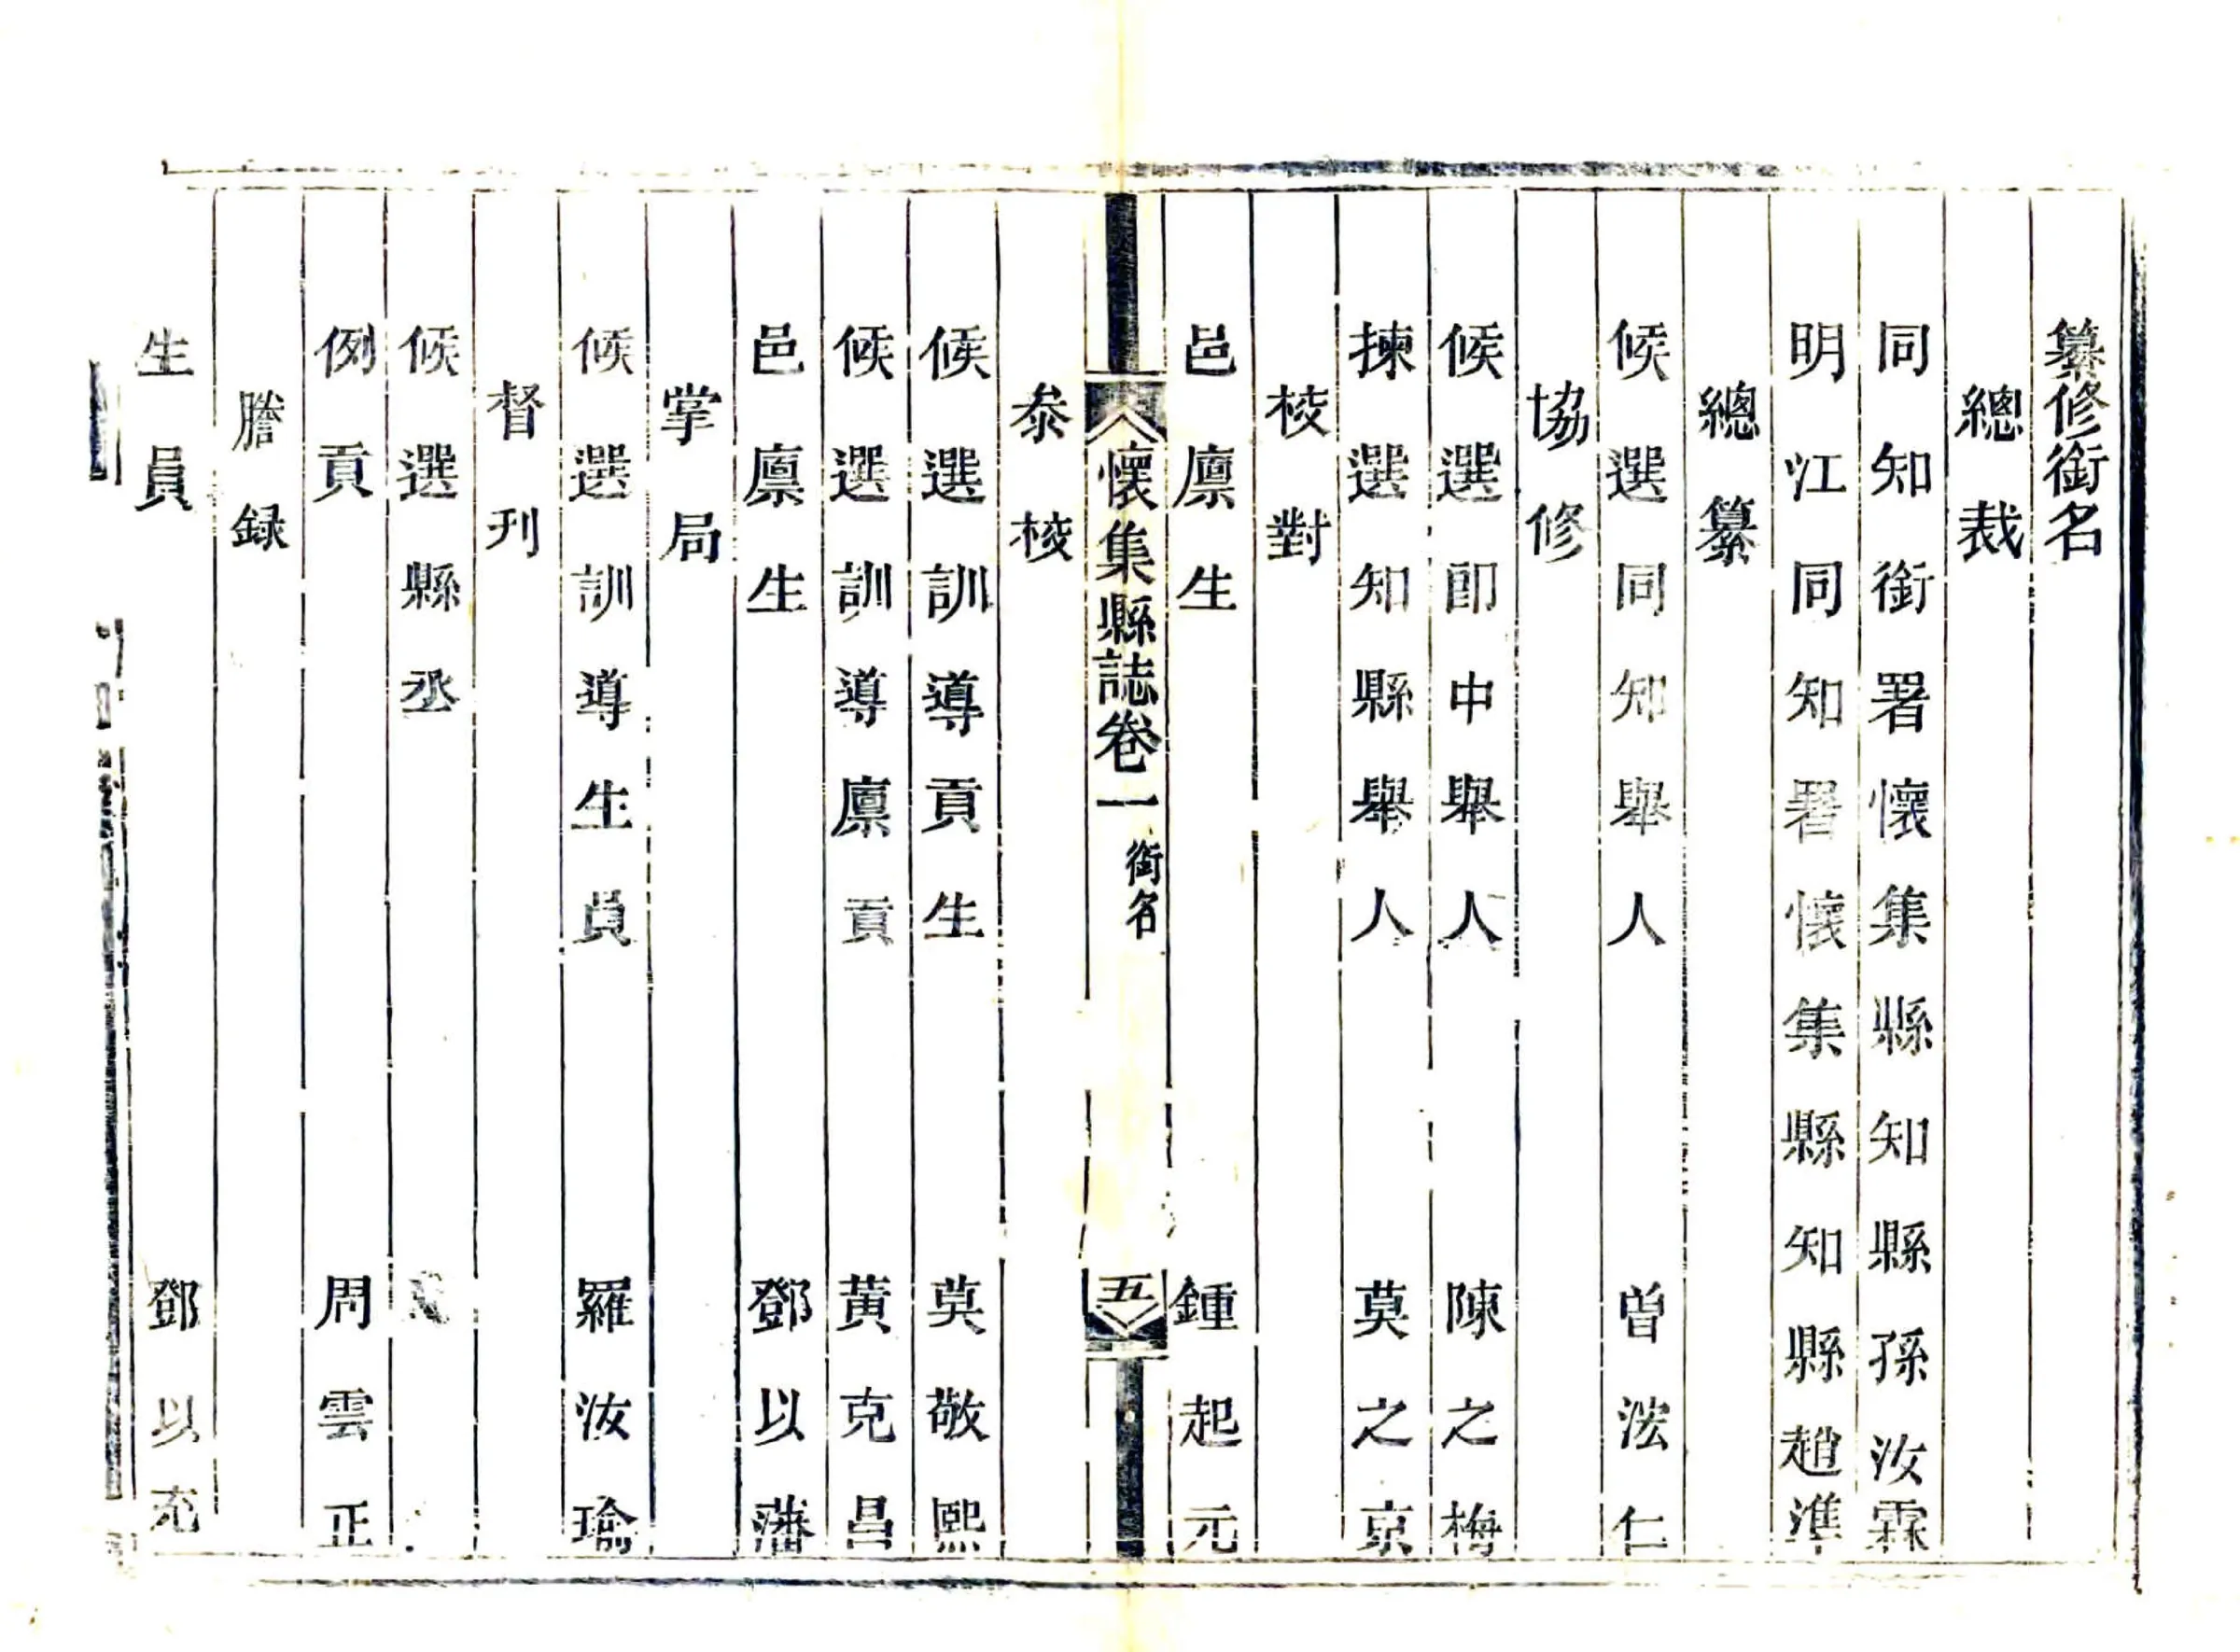 纂修銜名
總裁
同知銜署懷集縣知縣孫汝霖
明江同知署懷集縣知縣趙準
總纂
候選同知舉人 曾法仁
協修
候選郎中舉人 陳之梅
揀選知縣舉人 莫之京
校對
邑廩生 鍾起元
懷集縣誌卷一 銜名 五
叅校
候選訓導貢生 莫敬熙
候選訓導廩貢 黃克昌
邑廩生 鄧以藩
掌局
候選訓導生員 羅汝瑜
督刊
候選縣丞
例貢 周雲正
謄録
生員 鄧以充